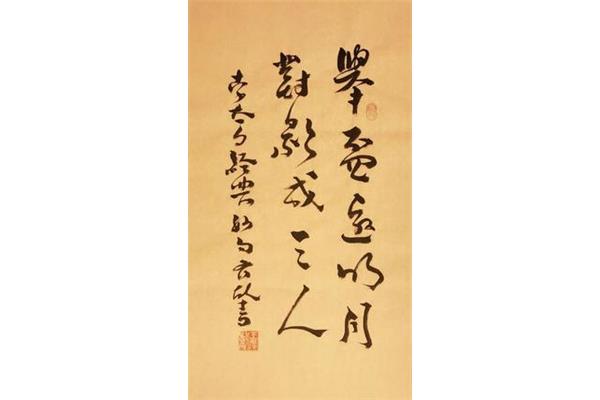 舉盃邀明月
對影成三人
李太白經典詩句
書